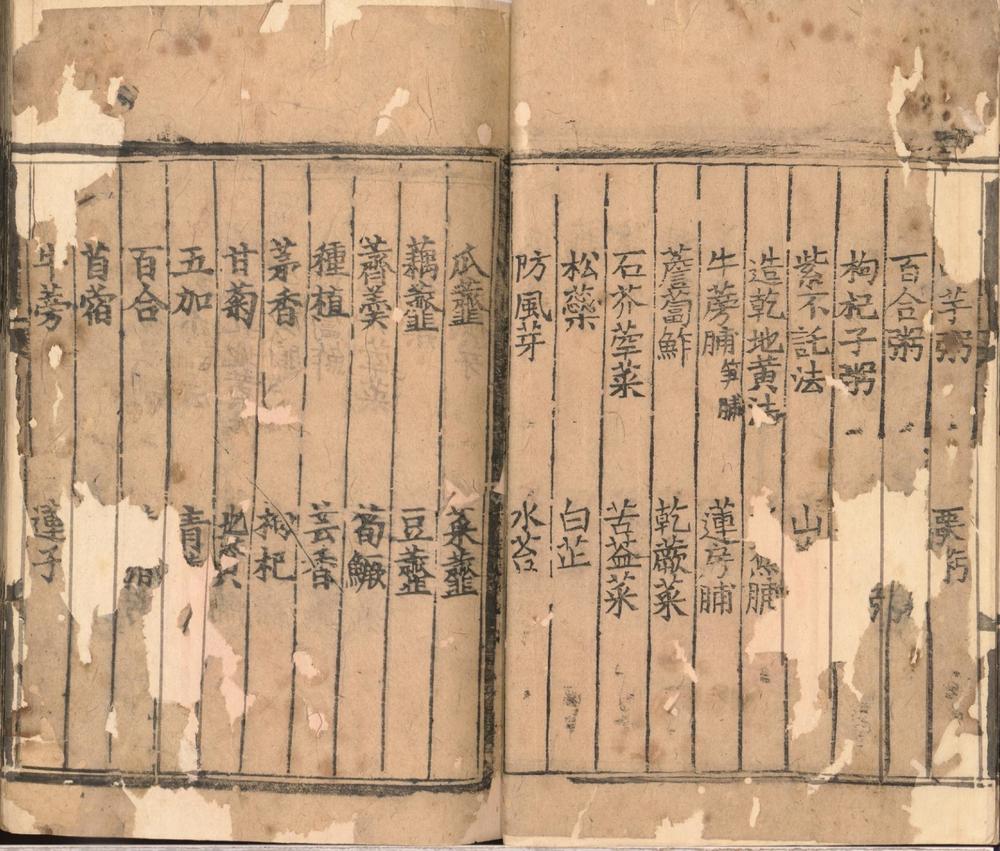 芋粥 栗粥
百合粥 粥
枸杞子粥
紫不託法 山
造乾地黄法 脯
牛蒡脯 笋脯 蓮房脯
薝蔔鮓 乾蕨菜
石芥荤菜 苦益菜
松蘂 白芷
防風芽 水苔
瓜虀 菜虀
藕虀 豆虀
薺羹 筍鱖
種植 芸香
茅香 枸杞
甘菊 地黄
五加 青
百合
苜蓿
牛蒡 蓮子